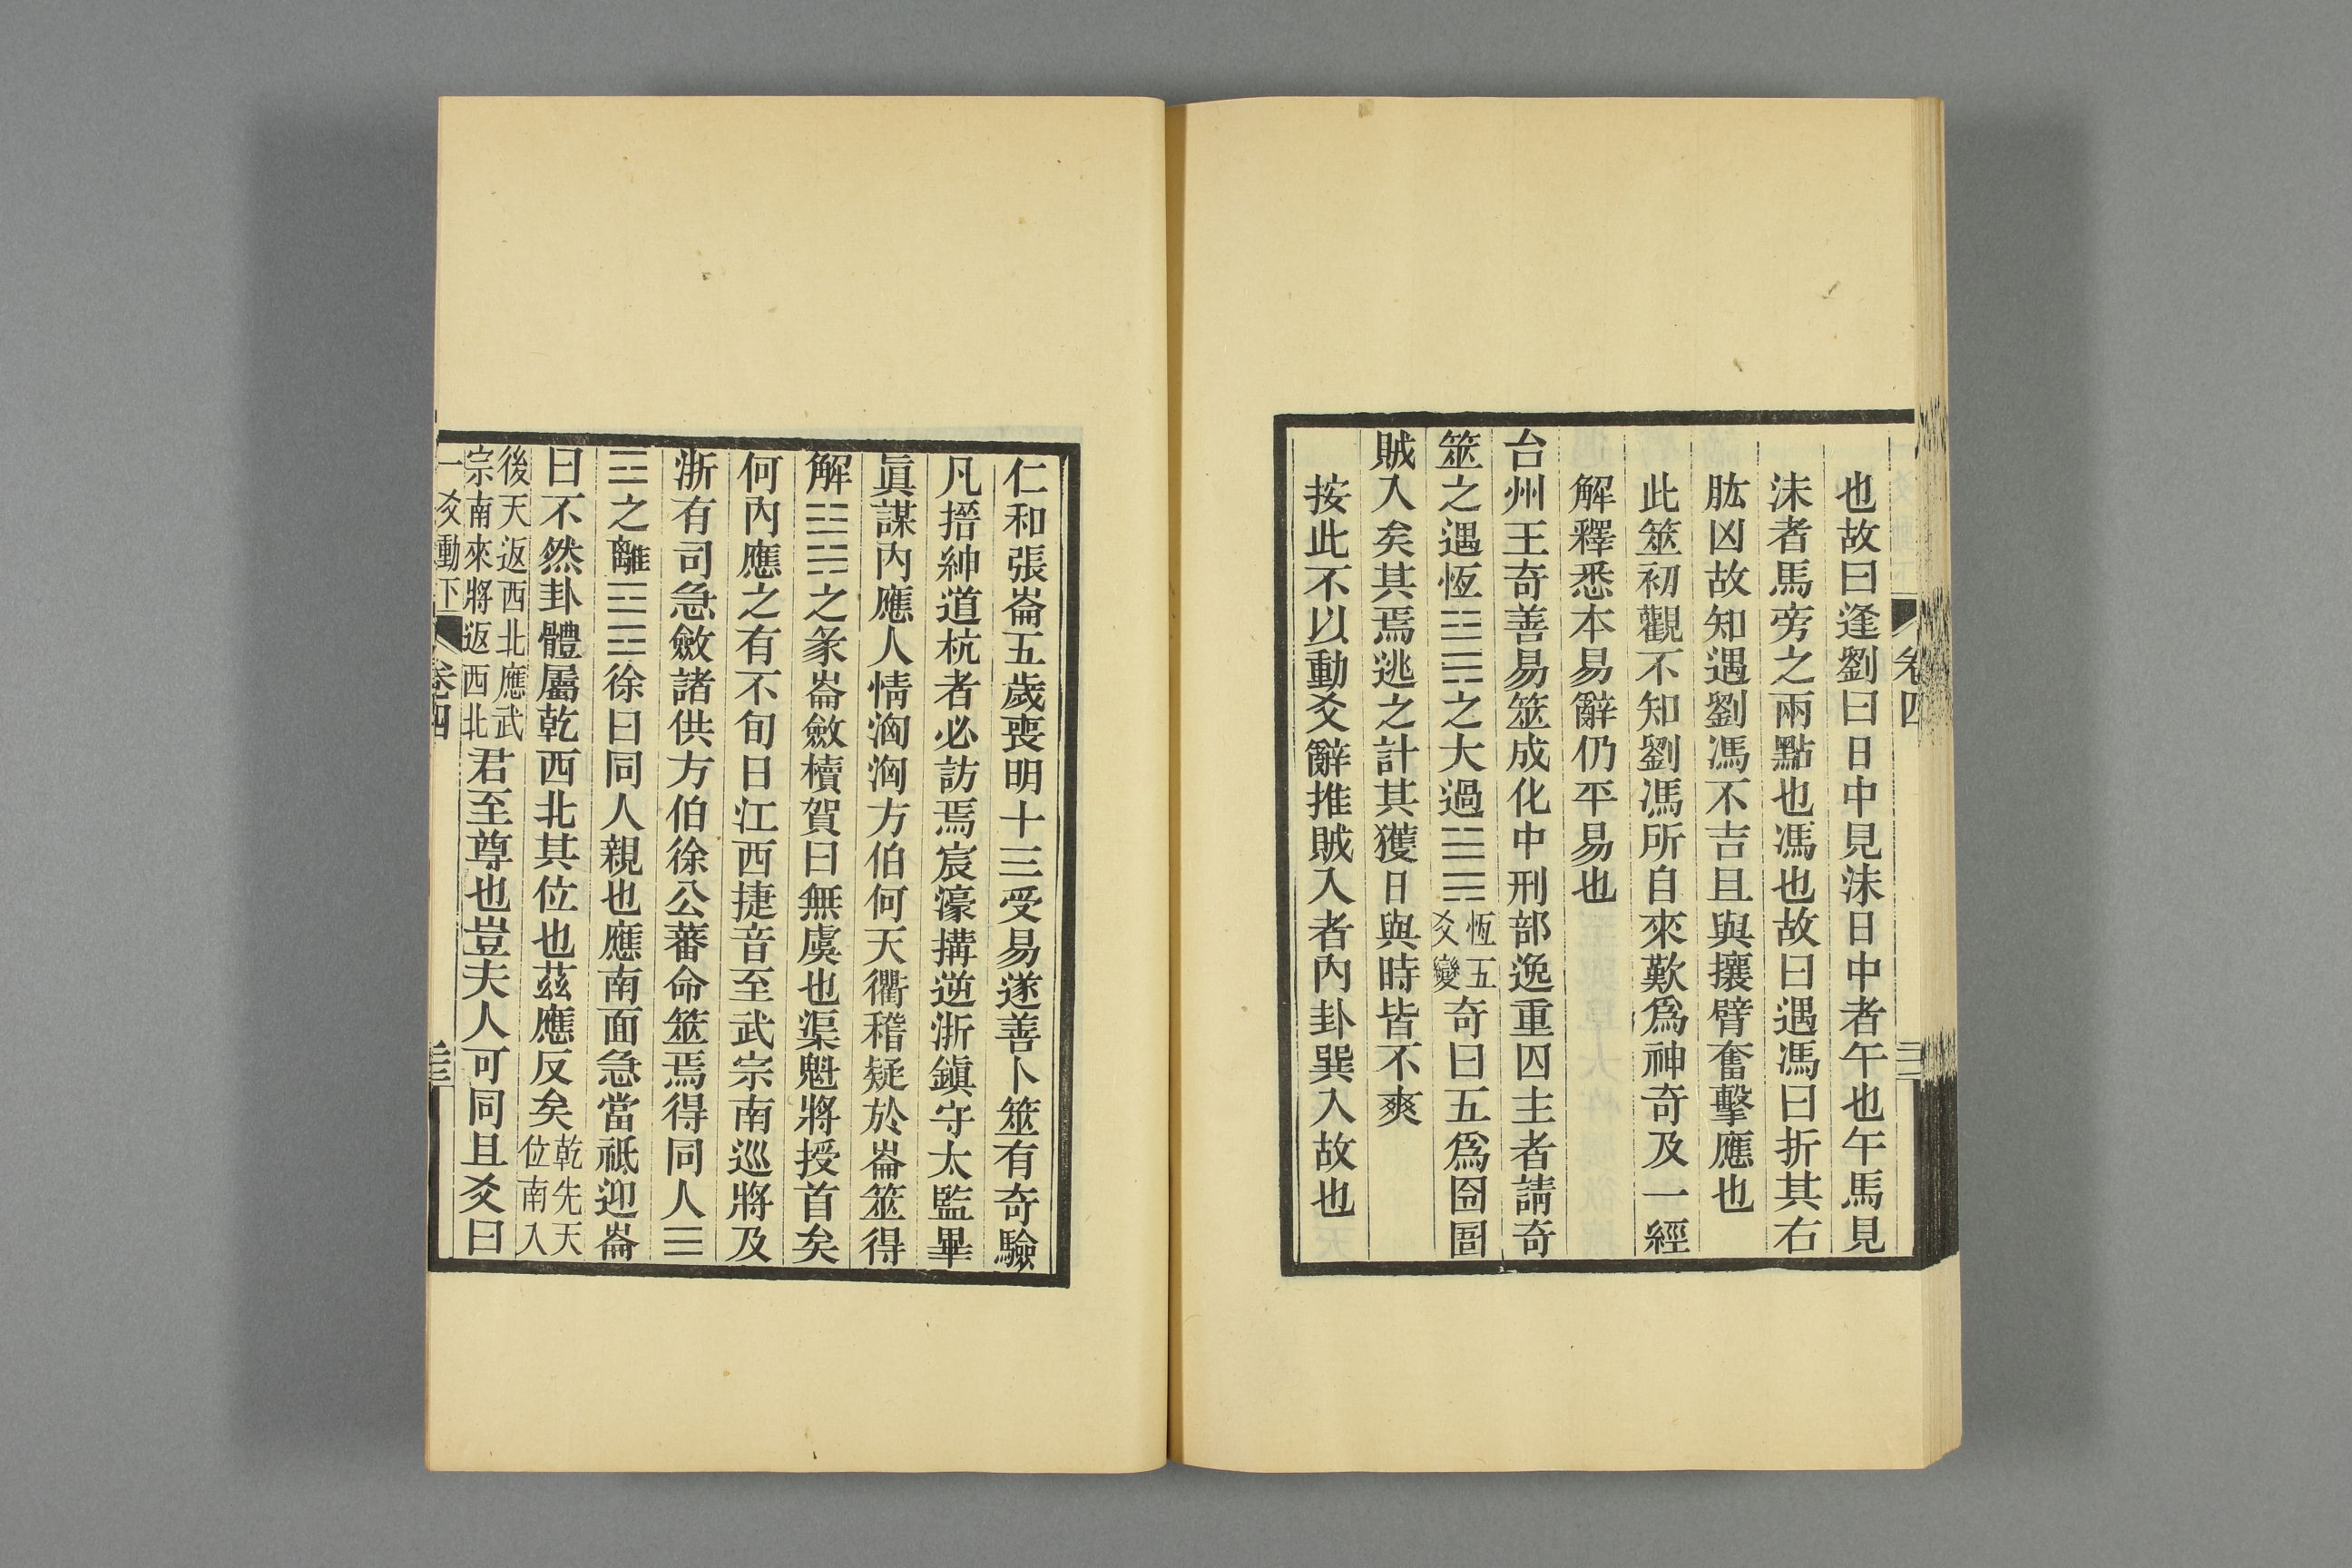 卷四
也故曰逢劉曰日中見沬日中者午也午馬見
沬者馬旁之兩點也馮也故曰遇馮曰折其右
肱凶故知遇劉馮不吉且與攘臂奮擊應也
此筮初觀不知劉馮所自來歎爲神奇及一經
解釋悉本易辭仍平易也
台州王奇善易筮成化中刑部逸重囚主者請奇
筮之遇恆☳☴之大過☱☴恆五爻變奇曰五爲囹圄
賊入矣其焉逃之計其獲日與時皆不爽
按此不以動爻辭推賊入者內卦巽入故也
仁和張崙五歲喪明十三受易遂善卜筮有奇驗
凡搢紳道杭者必訪焉宸濠搆逆浙鎮守太監畢
眞謀內應人情洶洶方伯何天衢稽疑於崙筮得
解☳☵之豕崙斂櫝賀曰無虞也渠魁將授首矣
何內應之有不旬日江西捷音至武宗南巡將及
浙有司急斂諸供方伯徐公蕃命筮焉得同人☰
☲之離☲☲徐曰同人親也應南面急當祗迎崙
曰不然卦體屬乾西北其位也茲應反矣乾先天位南入
後天返西北應武宗南來將返西北君至尊也豈夫人可同且爻曰
一爻動下 卷四